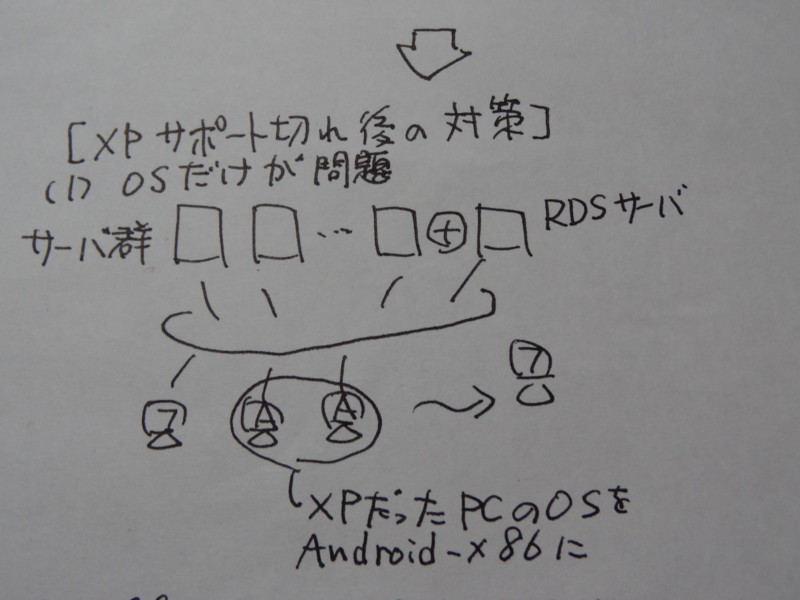 [XPサポート切れ後の対策]
(1) OSだけが問題
サーバ群 … + RDSサーバ
7
7 A A
XPだったPCのOSを
Android-x86に